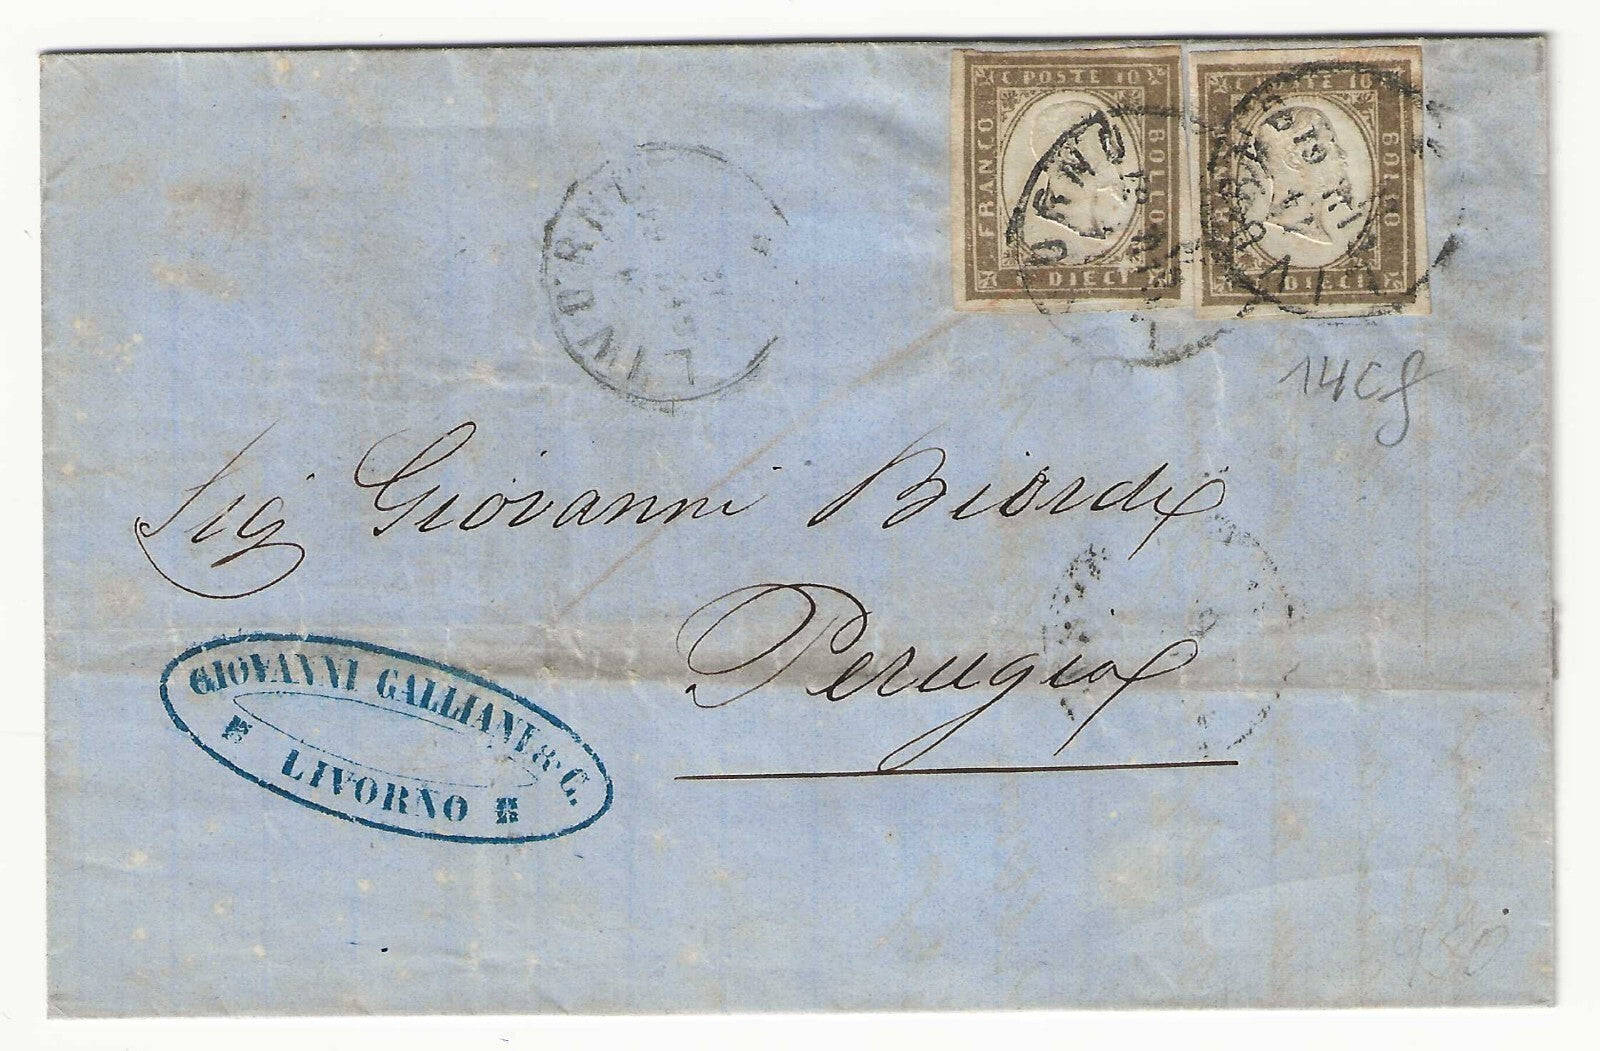 C POSTE 10
FRANCO
BOLLO
C DIECI
C POSTE 10
BOLLO
DIECI
LIVORNO
14Cf
Sig Giovanni Biordi
Perugia
GIOVANNI GALLIANI & C.
LIVORNO
950